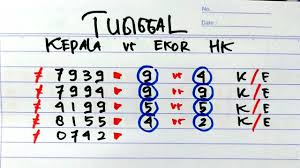 No.:
Date:
TUNGGAL
KEPALA vr EKOR HK
7939 9 vr 4 K/E
7994 9 vr 9 K/E
4199 5 vr 5 K/E
8155 4 vr 2 K/E
0742